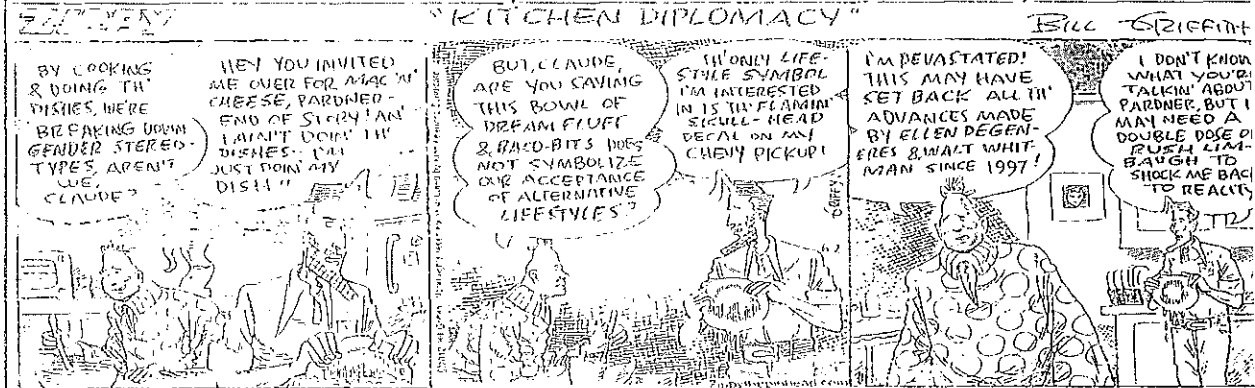 ZIPPY
"KITCHEN DIPLOMACY"
BILL GRIFFITH
BY COOKING
& DOING TH'
DISHES, WE'RE
BREAKING DOWN
GENDER STEREO-
TYPES, AREN'T
WE,
CLAUDE?
HEY YOU INVITED
ME OVER FOR MAC 'N'
CHEESE, PARDNER-
END OF STORY! AN'
I AIN'T DOIN' TH'
DISHES-- I'M
JUST DOIN' MY
DISH!!
BUT, CLAUDE,
ARE YOU SAYING
THIS BOWL OF
DREAM FLUFF
& BACO-BITS DOES
NOT SYMBOLIZE
OUR ACCEPTANCE
OF ALTERNATIVE
LIFESTYLES?
TH' ONLY LIFE-
STYLE SYMBOL
I'M INTERESTED
IN IS TH' FLAMIN'
SKULL-HEAD
DECAL ON MY
CHEVY PICKUP!
I'M DEVASTATED!
THIS MAY HAVE
SET BACK ALL TH'
ADVANCES MADE
BY ELLEN DEGEN-
ERES & WALT WHIT-
MAN SINCE 1997!
I DON'T KNOW
WHAT YOU'R
TALKIN' ABOUT
PARDNER, BUT I
MAY NEED A
DOUBLE DOSE O
RUSH LIM-
BAUGH TO
SHOCK ME BAC
TO REALITY
6-2
zippythepinhead.com